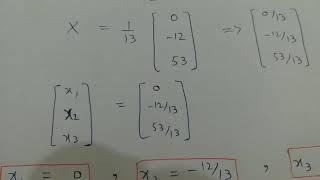 X = 1/13 [0 -12 53] => [0/13 -12/13 53/13]
[x₁ x₂ x₃] = [0 -12/13 53/13]
x₁ = 0 , x₂ = -12/13 , x₃